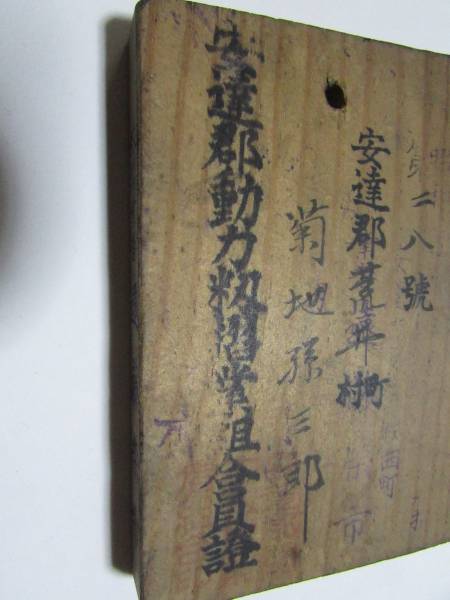 第二八號
安達郡
町
村
西町
市
菊地孫三郎
安達郡動力籾摺業組合員證